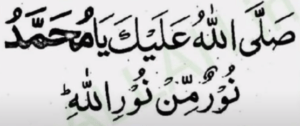 صَلَّی اللهُ عَلَيْكَ يَا مُحَمَّدُ
نُوْرٌ مِّنْ نُوْرِ اللهِ